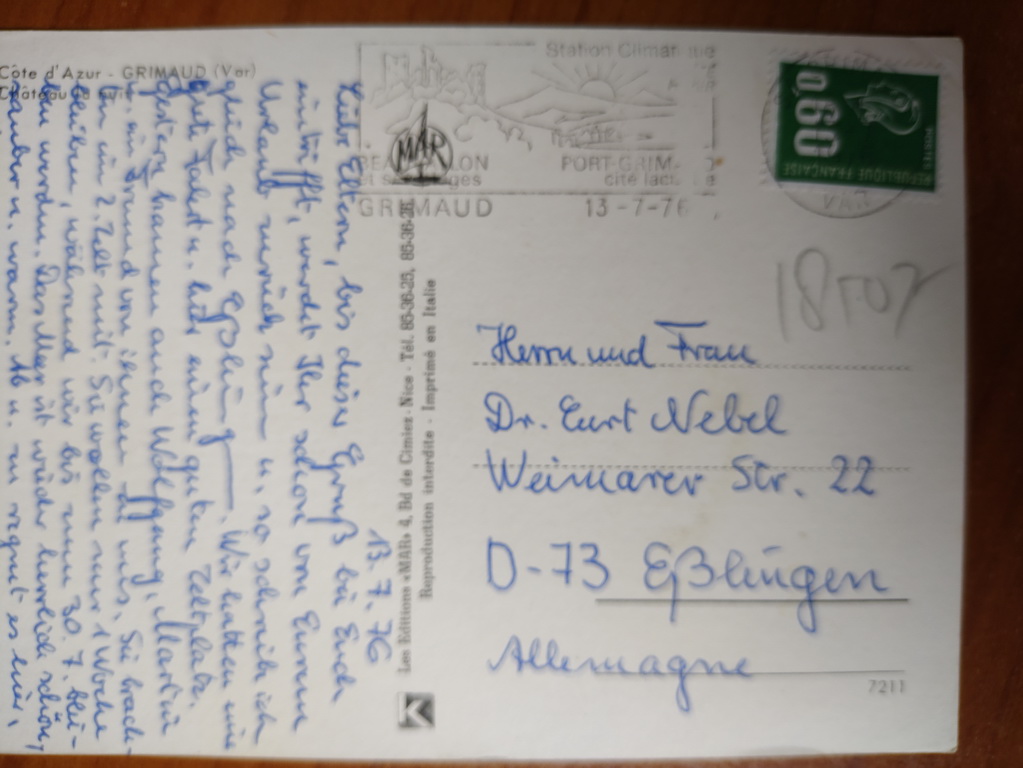 Côte d'Azur - GRIMAUD (Var)
13.7.76
Liebe Eltern, bis dieser Gruß bei Euch
eintrifft, werdet Ihr schon von Eurem
Urlaub zurück sein u. so schreib ich
gleich nach Eßlingen. Wir hatten eine
gute Fahrt u. hier einen guten Zeltplatz.
Gestern kamen auch Wolfgang, Martin
u. ein Freund von ihnen zu uns. Sie brach-
ten ein 2. Zelt mit. Sie wollen nur 1 Woche
bleiben, während wir bis zum 30.7. blei-
ben werden. Das Meer ist wieder herrlich schön,
sauber u. warm. Ab u. zu regnet es hier,
Les Editions «MAR» 4, Bd de Cimiez - Nice - Tél. 85-36-25, 85-36-26
Reproduction interdite - Imprimé en Italie
MAR
Station Climatique
PORT-GRIM
cité lac
GRIMAUD
13-7-76
0,60
POSTES
REPUBLIQUE FRANCAISE
VAR
18F07
Herrn und Frau
Dr. Curt Nebel
Weimarer Str. 22
D-73 Eßlingen
Allemagne
7211